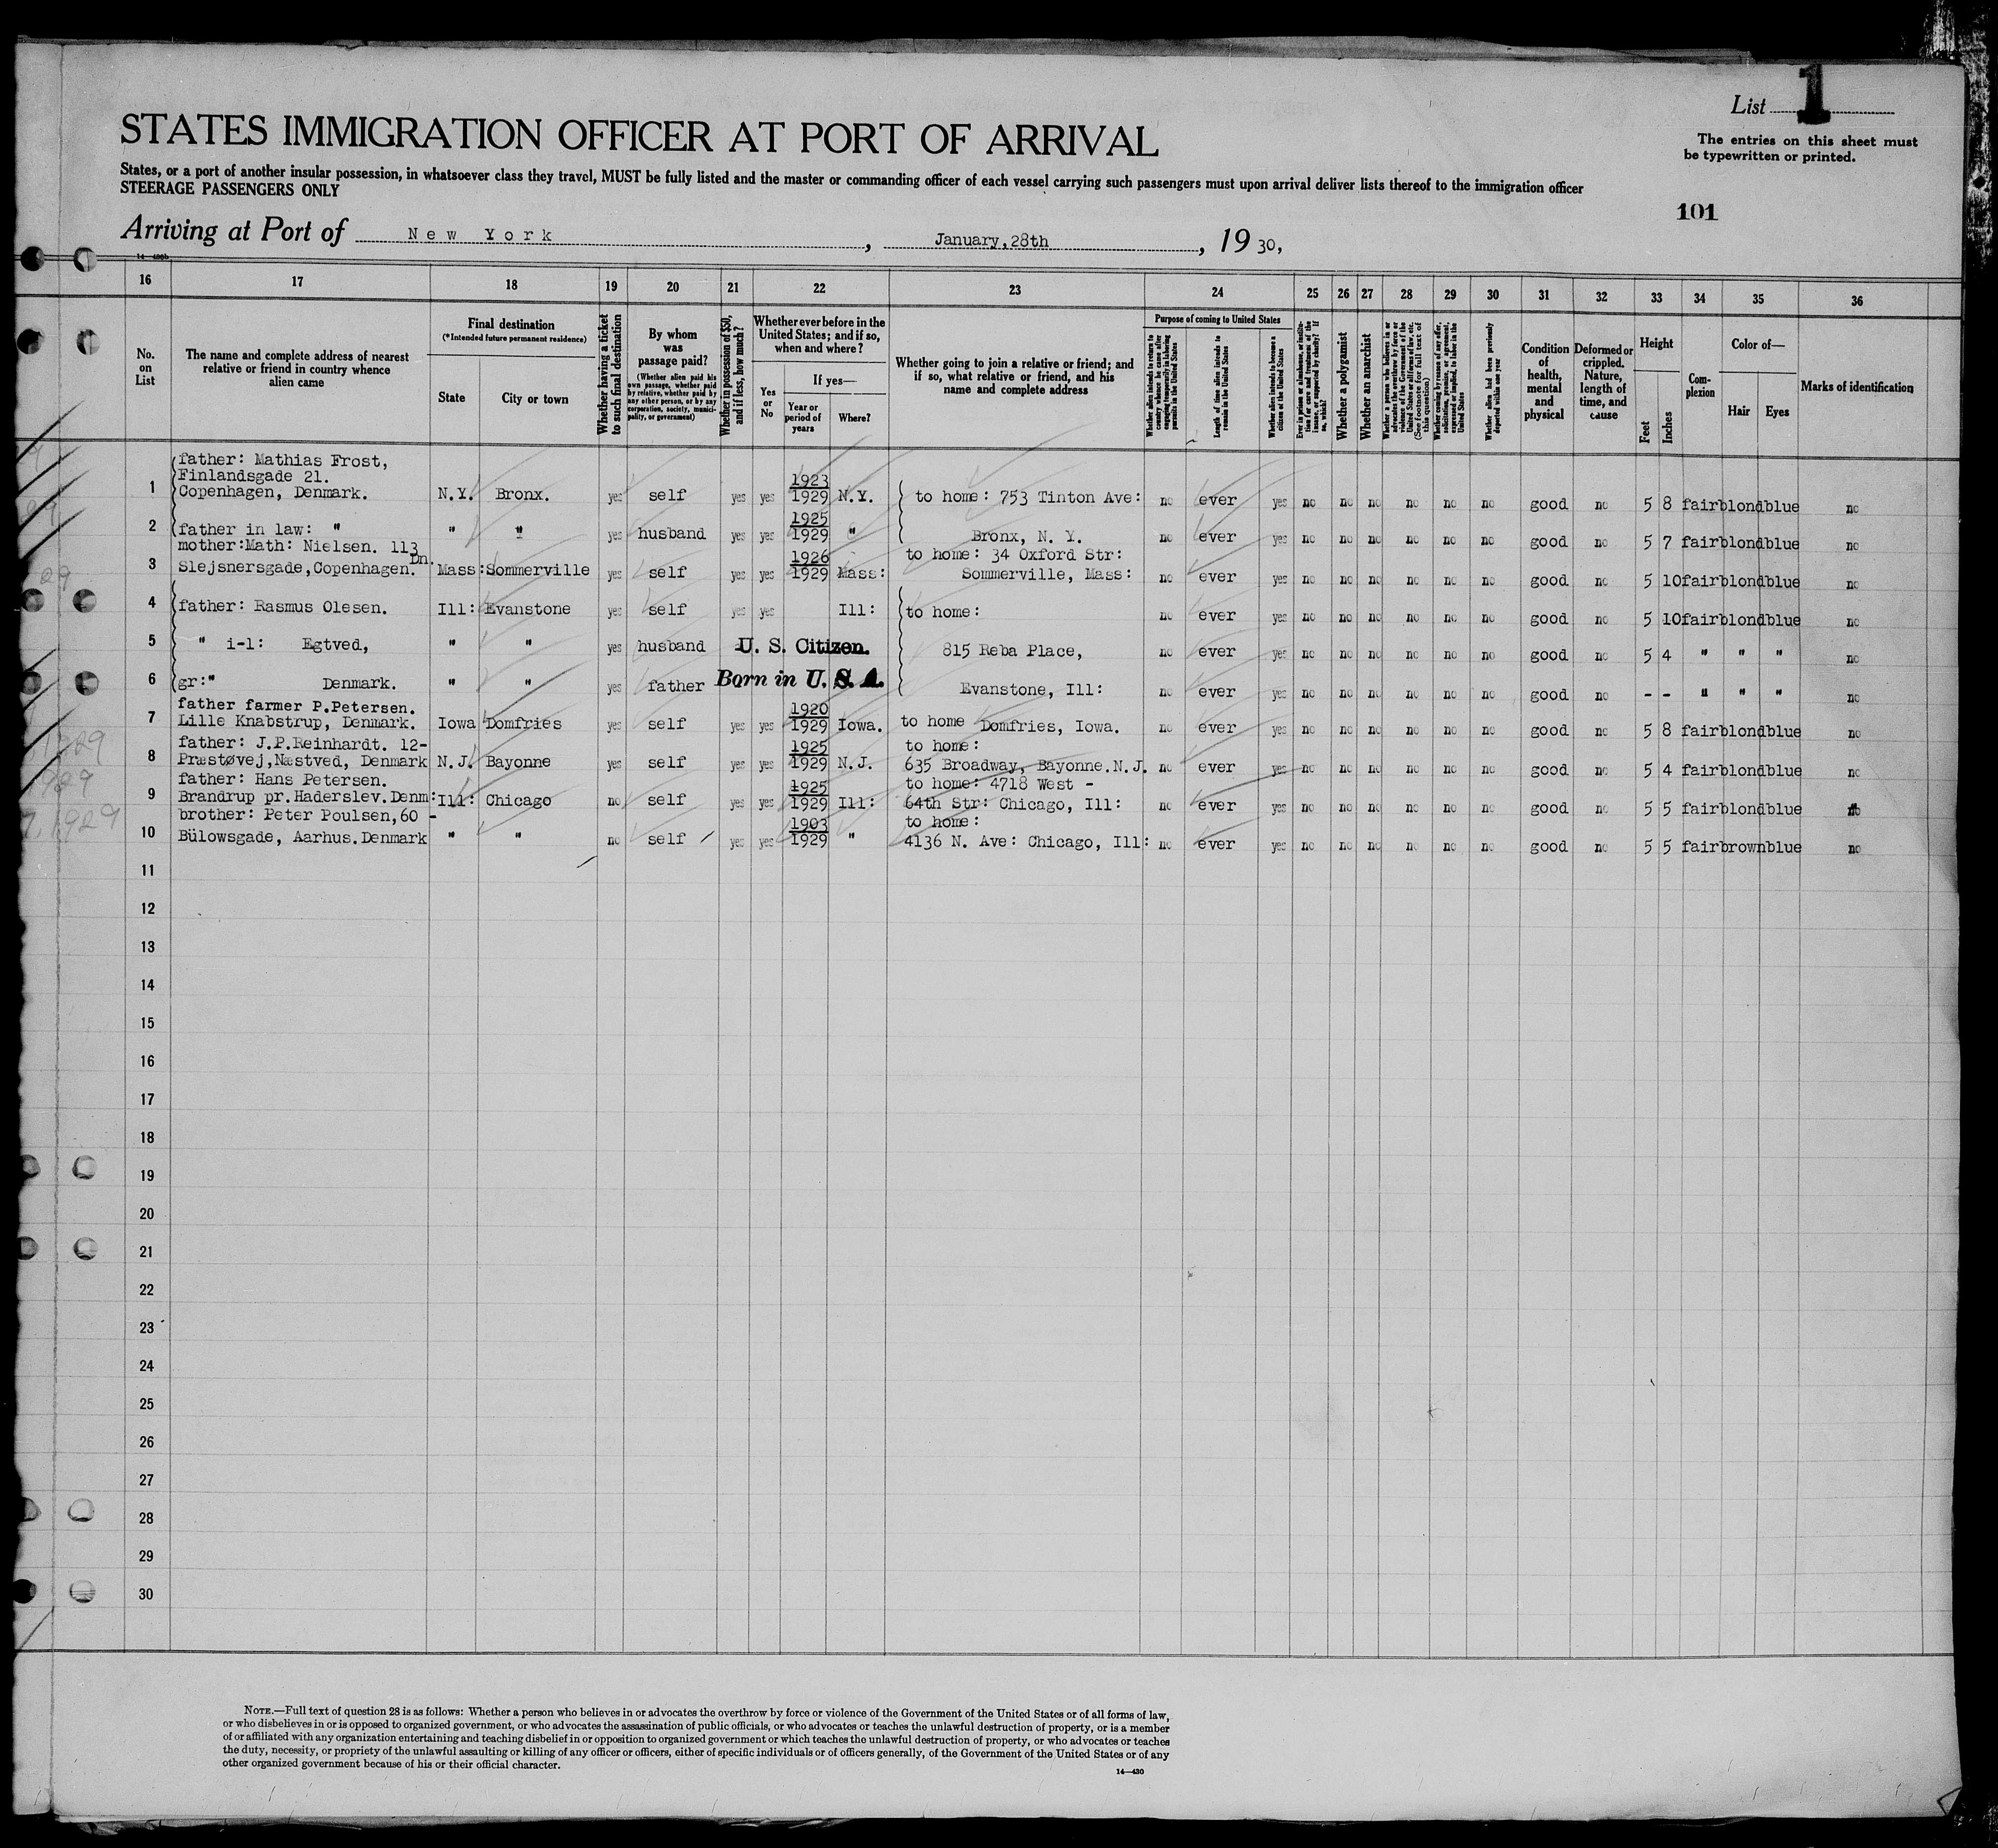 List 1
The entries on this sheet must
be typewritten or printed.
STATES IMMIGRATION OFFICER AT PORT OF ARRIVAL
States, or a port of another insular possession, in whatsoever class they travel, MUST be fully listed and the master or commanding officer of each vessel carrying such passengers must upon arrival deliver lists thereof to the immigration officer
STEERAGE PASSENGERS ONLY
101
Arriving at Port of New York, January, 28th, 1930,
16 17 18 19 20 21 22 23 24 25 26 27 28 29 30 31 32 33 34 35 36
No. on List
The name and complete address of nearest relative or friend in country whence alien came
Final destination
(*Intended future permanent residence)
State
City or town
Whether having a ticket to such final destination
By whom was passage paid?
(Whether alien paid his own passage, whether paid by relative, whether paid by any other person, or by any corporation, society, municipality, or government)
Whether in possession of $50, and if less, how much?
Whether ever before in the United States; and if so, when and where?
Yes or No
If yes—
Year or period of years
Where?
Whether going to join a relative or friend; and if so, what relative or friend, and his name and complete address
Purpose of coming to United States
Whether alien intends to return to country whence he came after engaging temporarily in laboring pursuits in the United States
Length of time alien intends to remain in the United States
Whether alien intends to become a citizen of the United States
Whether a polygamist
Whether an anarchist
Whether alien had been previously deported within one year
Condition of health, mental and physical
Deformed or crippled. Nature, length of time, and cause
Height
Feet
Inches
Complexion
Color of—
Hair
Eyes
Marks of identification
father: Mathias Frost,
Finlandsgade 21. 1923
1 Copenhagen, Denmark. N.Y. Bronx. yes self yes yes 1929 N.Y. to home: 753 Tinton Ave: no ever yes no no no no no no good no 5 8 fair blond blue no
1925
2 father in law: " " " yes husband yes yes 1929 " Bronx, N. Y. no ever yes no no no no no no good no 5 7 fair blond blue no
mother:Math: Nielsen. 113 1926 to home: 34 Oxford Str:
3 Slejsnersgade,Copenhagen. Dn. Mass: Sommerville yes self yes yes 1929 Mass: Sommerville, Mass: no ever yes no no no no no no good no 5 10 fair blond blue no
4 father: Rasmus Olesen. Ill: Evanstone yes self yes yes Ill: to home: no ever yes no no no no no no good no 5 10 fair blond blue no
5 " i-l: Egtved, " " yes husband U. S. Citizen. 815 Reba Place, no ever yes no no no no no no good no 5 4 " " " no
6 gr:" Denmark. " " yes father Born in U. S. A. Evanstone, Ill: no ever yes no no no no no no good no - - " " " no
father farmer P.Petersen. 1920
7 Lille Knabstrup, Denmark. Iowa Domfries yes self yes yes 1929 Iowa. to home Domfries, Iowa. no ever yes no no no no no no good no 5 8 fair blond blue no
father: J.P.Reinhardt. 12- 1925 to home:
8 Præstøvej,Næstved, Denmark N.J. Bayonne yes self yes yes 1929 N.J. 635 Broadway, Bayonne.N.J. no ever yes no no no no no no good no 5 4 fair blond blue no
father: Hans Petersen. 1925 to home: 4718 West -
9 Brandrup pr.Haderslev.Denm: Ill: Chicago no self yes yes 1929 Ill: 64th Str: Chicago, Ill: no ever yes no no no no no no good no 5 5 fair blond blue no
brother: Peter Poulsen,60 - 1903 to home:
10 Bülowsgade, Aarhus.Denmark " " no self yes yes 1929 " 4136 N. Ave: Chicago, Ill: no ever yes no no no no no no good no 5 5 fair brown blue no
11
12
13
14
15
16
17
18
19
20
21
22
23
24
25
26
27
28
29
30
NOTE.—Full text of question 28 is as follows: Whether a person who believes in or advocates the overthrow by force or violence of the Government of the United States or of all forms of law,
or who disbelieves in or is opposed to organized government, or who advocates the assassination of public officials, or who advocates or teaches the unlawful destruction of property, or is a member
of or affiliated with any organization entertaining and teaching disbelief in or opposition to organized government or which teaches the unlawful destruction of property, or who advocates or teaches
the duty, necessity, or propriety of the unlawful assaulting or killing of any officer or officers, either of specific individuals or of officers generally, of the Government of the United States or of any
other organized government because of his or their official character.
14—430